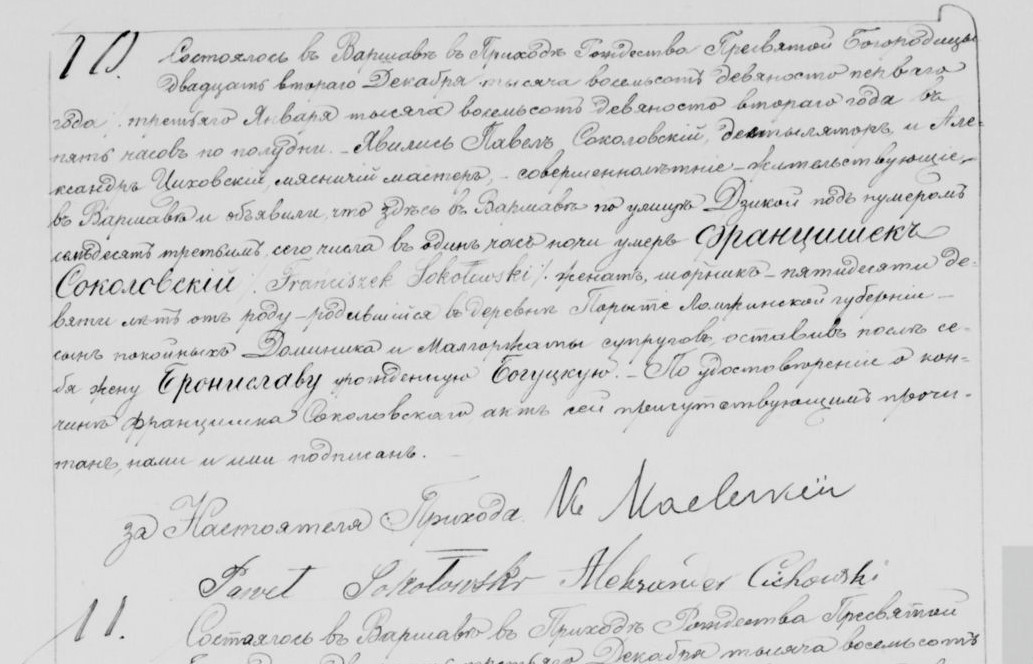 10. Состоялось въ Варшавѣ въ Приходѣ Рождества Пресвятой Богородицы
двадцать втораго Декабря тысяча восемьсотъ девяносто перваго
года /: третьяго Января тысяча восемьсотъ девяносто втораго года въ
пять часовъ по полудни. – Явились Павелъ Соколовскій, дистыляторъ, и Але-
ксандръ Циховскій, мясничій мастеръ, – совершеннолѣтніе – жительствующіе
въ Варшавѣ и объявили, что здѣсь въ Варшавѣ по улицѣ Дзикой подъ нумеромъ
семьдесятъ третьимъ сего числа въ одинъ часъ ночи умеръ Францишекъ
Соколовскій /: Franciszek Sokołowski /: женатъ, шорникъ – пятидесяти де-
вяти лѣтъ отъ роду – родившійся въ деревнѣ Порыте Ломжинской губерніи –
сынъ покойныхъ Доминика и Малгоржаты супруговъ, оставивъ послѣ се-
бя жену Брониславу урожденную Богуцкую. – По удостовѣреніи о кон-
чинѣ Францишка Соколовскаго, актъ сей присутствующимъ прочи-
танъ, нами и ими подписанъ. –
за Настоятеля Прихода
Paweł Sokołowski Aleksander Cichowski
11. Состоялось въ Варшавѣ въ Приходѣ Рождества Пресвятой
Декабря тысяча восемьсотъ